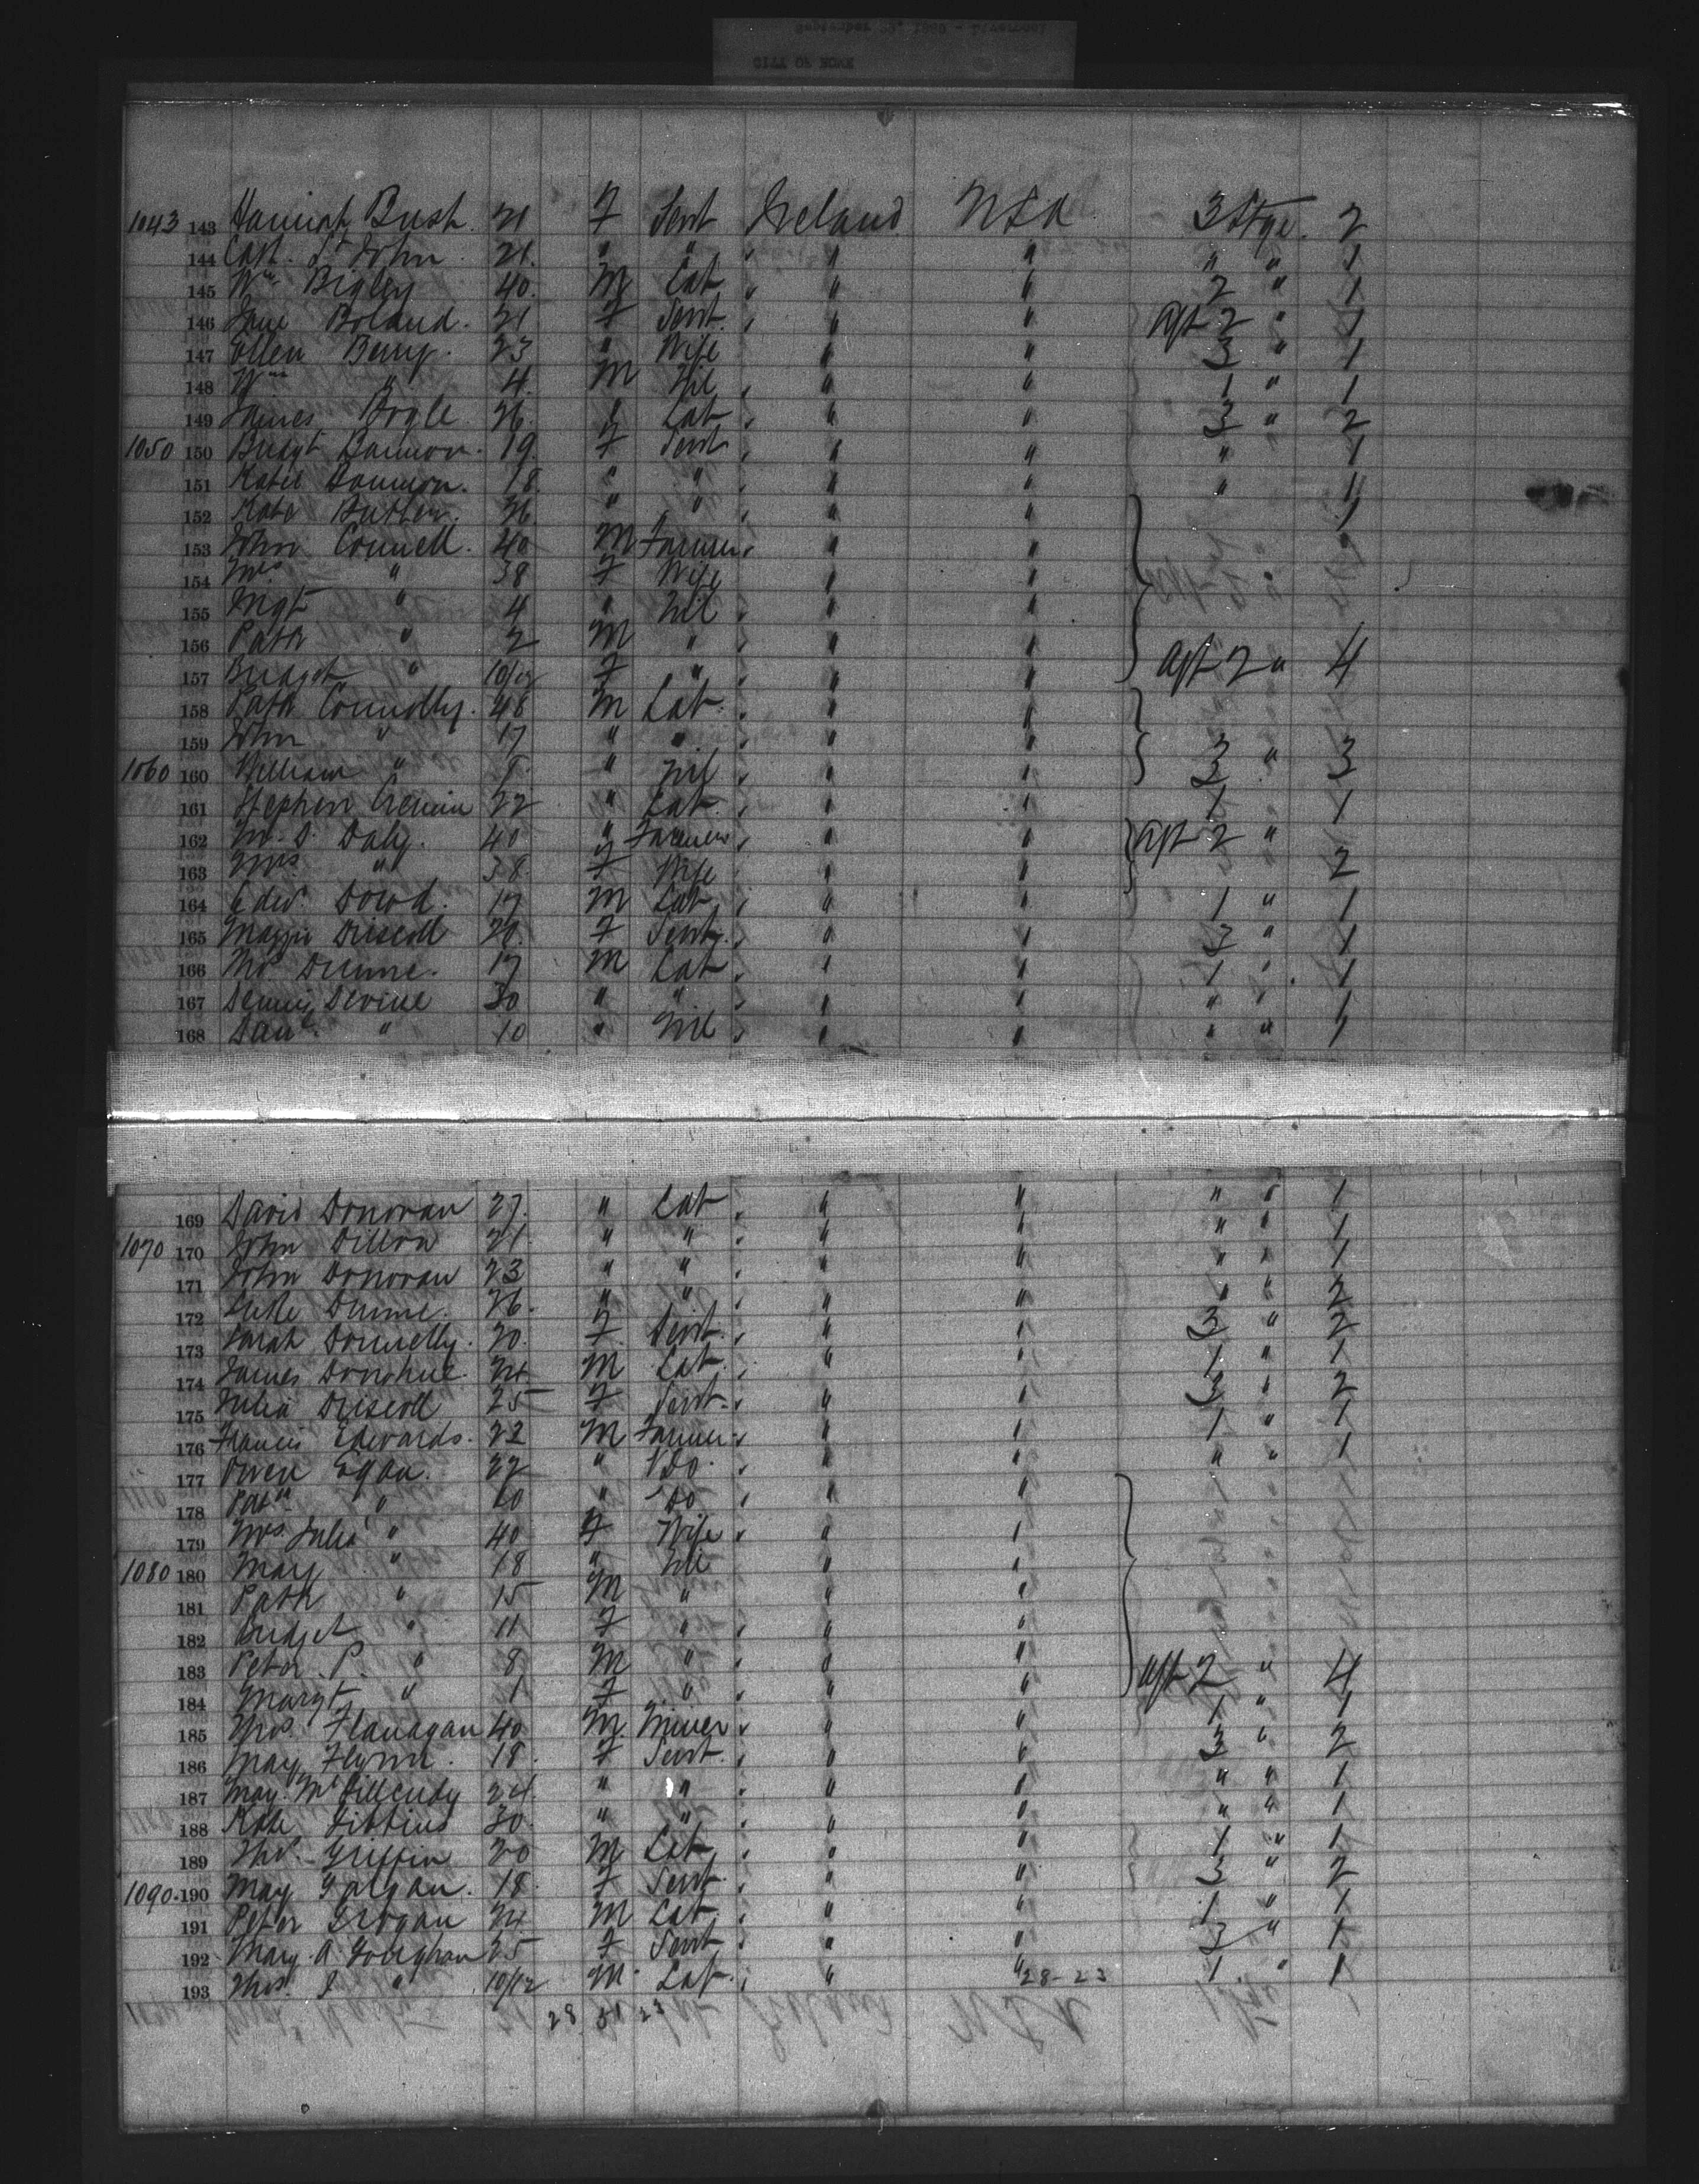 September 22, 1890 - Liverpool
CITY OF ROME
1043 143 Hannah Bush. 21 F Servt Ireland USA 3 Stge. 2
144 Cath. St John 21. " " " " " " 1
145 Wm Bigley 40. M Lab " " 2 " 1
146 Jane Boland. 21 F Servt. " " Aft 2 " 1
147 Ellen Berry. 23 " Wife " " 3 " 1
148 Wm " 4. M Nil " " 1 " 1
149 James Boyle 26. " Lab " " 3 " 2
1050 150 Bridgt Bannon. 19. F Servt " " " 1
151 Katie Bannon. 18. " " " " " 1
152 Kate Butler. " " " " 1
153 John Connell. 40 M Farmer " "
154 Mrs " 38 F Wife " "
155 Mgt " 4 " Nil " "
156 Patk " 2 M " " "
157 Bridget " 10/12 F " " " Aft 2 " 4
158 Patk Connolly. 48 M Lab. " "
159 John " 17 " " " "
1060 160 William " 8 " Nil " " 3 " 3
161 Stephen 22 " Lab. " " 1 1
162 M. S. Daly. 40 " Farmer " " Aft 2 "
163 Mrs " 38. F Wife " " 2
164 Edwd. Dowd. 17 M Lab " " 1 " 1
165 Maggie Driscoll 20. F Servt. " " 3 " 1
166 Thos. Dunne. 17 M Lab " " 1 " 1
167 Dennis Devine 30 " " " " " " 1
168 Danl. " 10 " Nil " " " " 1
169 David Donovan 27. " Lab " " " " 1
1070 170 John Dillon 21. " " " " " " 1
171 John Donovan 23 " " " " " " 1
172 Luke Dunne. 26. " " " " " " 2
173 Sarah Donnelly. 20. F Servt. " " 3 " 2
174 James Donohue 24 M Lab. " " 1 " 1
175 Julia Driscoll 25 F Servt. " " 3 " 2
176 Francis Edwards. 22 M Farmer " " 1 " 1
177 Owen Egan. 22 " Do. " " " " 1
178 Patk " " Do " "
179 Mrs. Julia " 40 F Wife " "
1080 180 Mary " 18 " Nil " "
181 Patk " 15 M " " "
182 Bridget " 11 F " " "
183 Peter P. " 8 M " " " Aft 2 " 4
184 Margt " 1 F " " "
185 Thos. Flanagan 40 M. Miner " " 1 " 1
186 May Flynn. 18. F Servt. " " 3 " 2
187 May Mc Gillcudy 24. " " " " " " 1
188 Kate Gibbins 30. " " " " " " 1
189 Thos. Griffin 20 M Lab " " 1 " 1
1090. 190 May Galgan. 18. F Servt. " " 3 " 2
191 Peter Grogan 24 M Lab. " " 1 " 1
192 Mary A. 25 F Servt. " " 3 " 1
193 Thos. J. " 10/12 M. Lab. " " 28-23 1 " 1
28 51 23